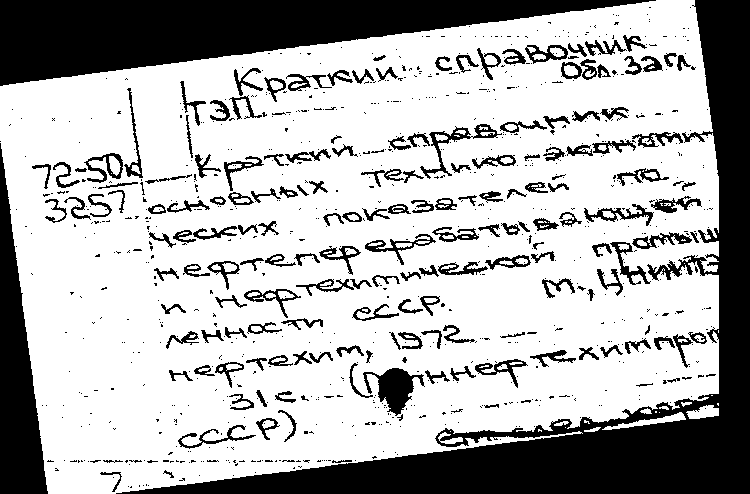 Краткий справочник
Обл. загл.
ТЭП.
72-50к
3257
Краткий справочник
основных технико-экономи-
ческих показателей по
нефтеперерабатывающей
и нефтехимической промыш
ленности СССР. М., ЦНИИТЭ
нефтехим, 1972
31 с. (Миннефтехимпром
СССР)
См. след. карт
7